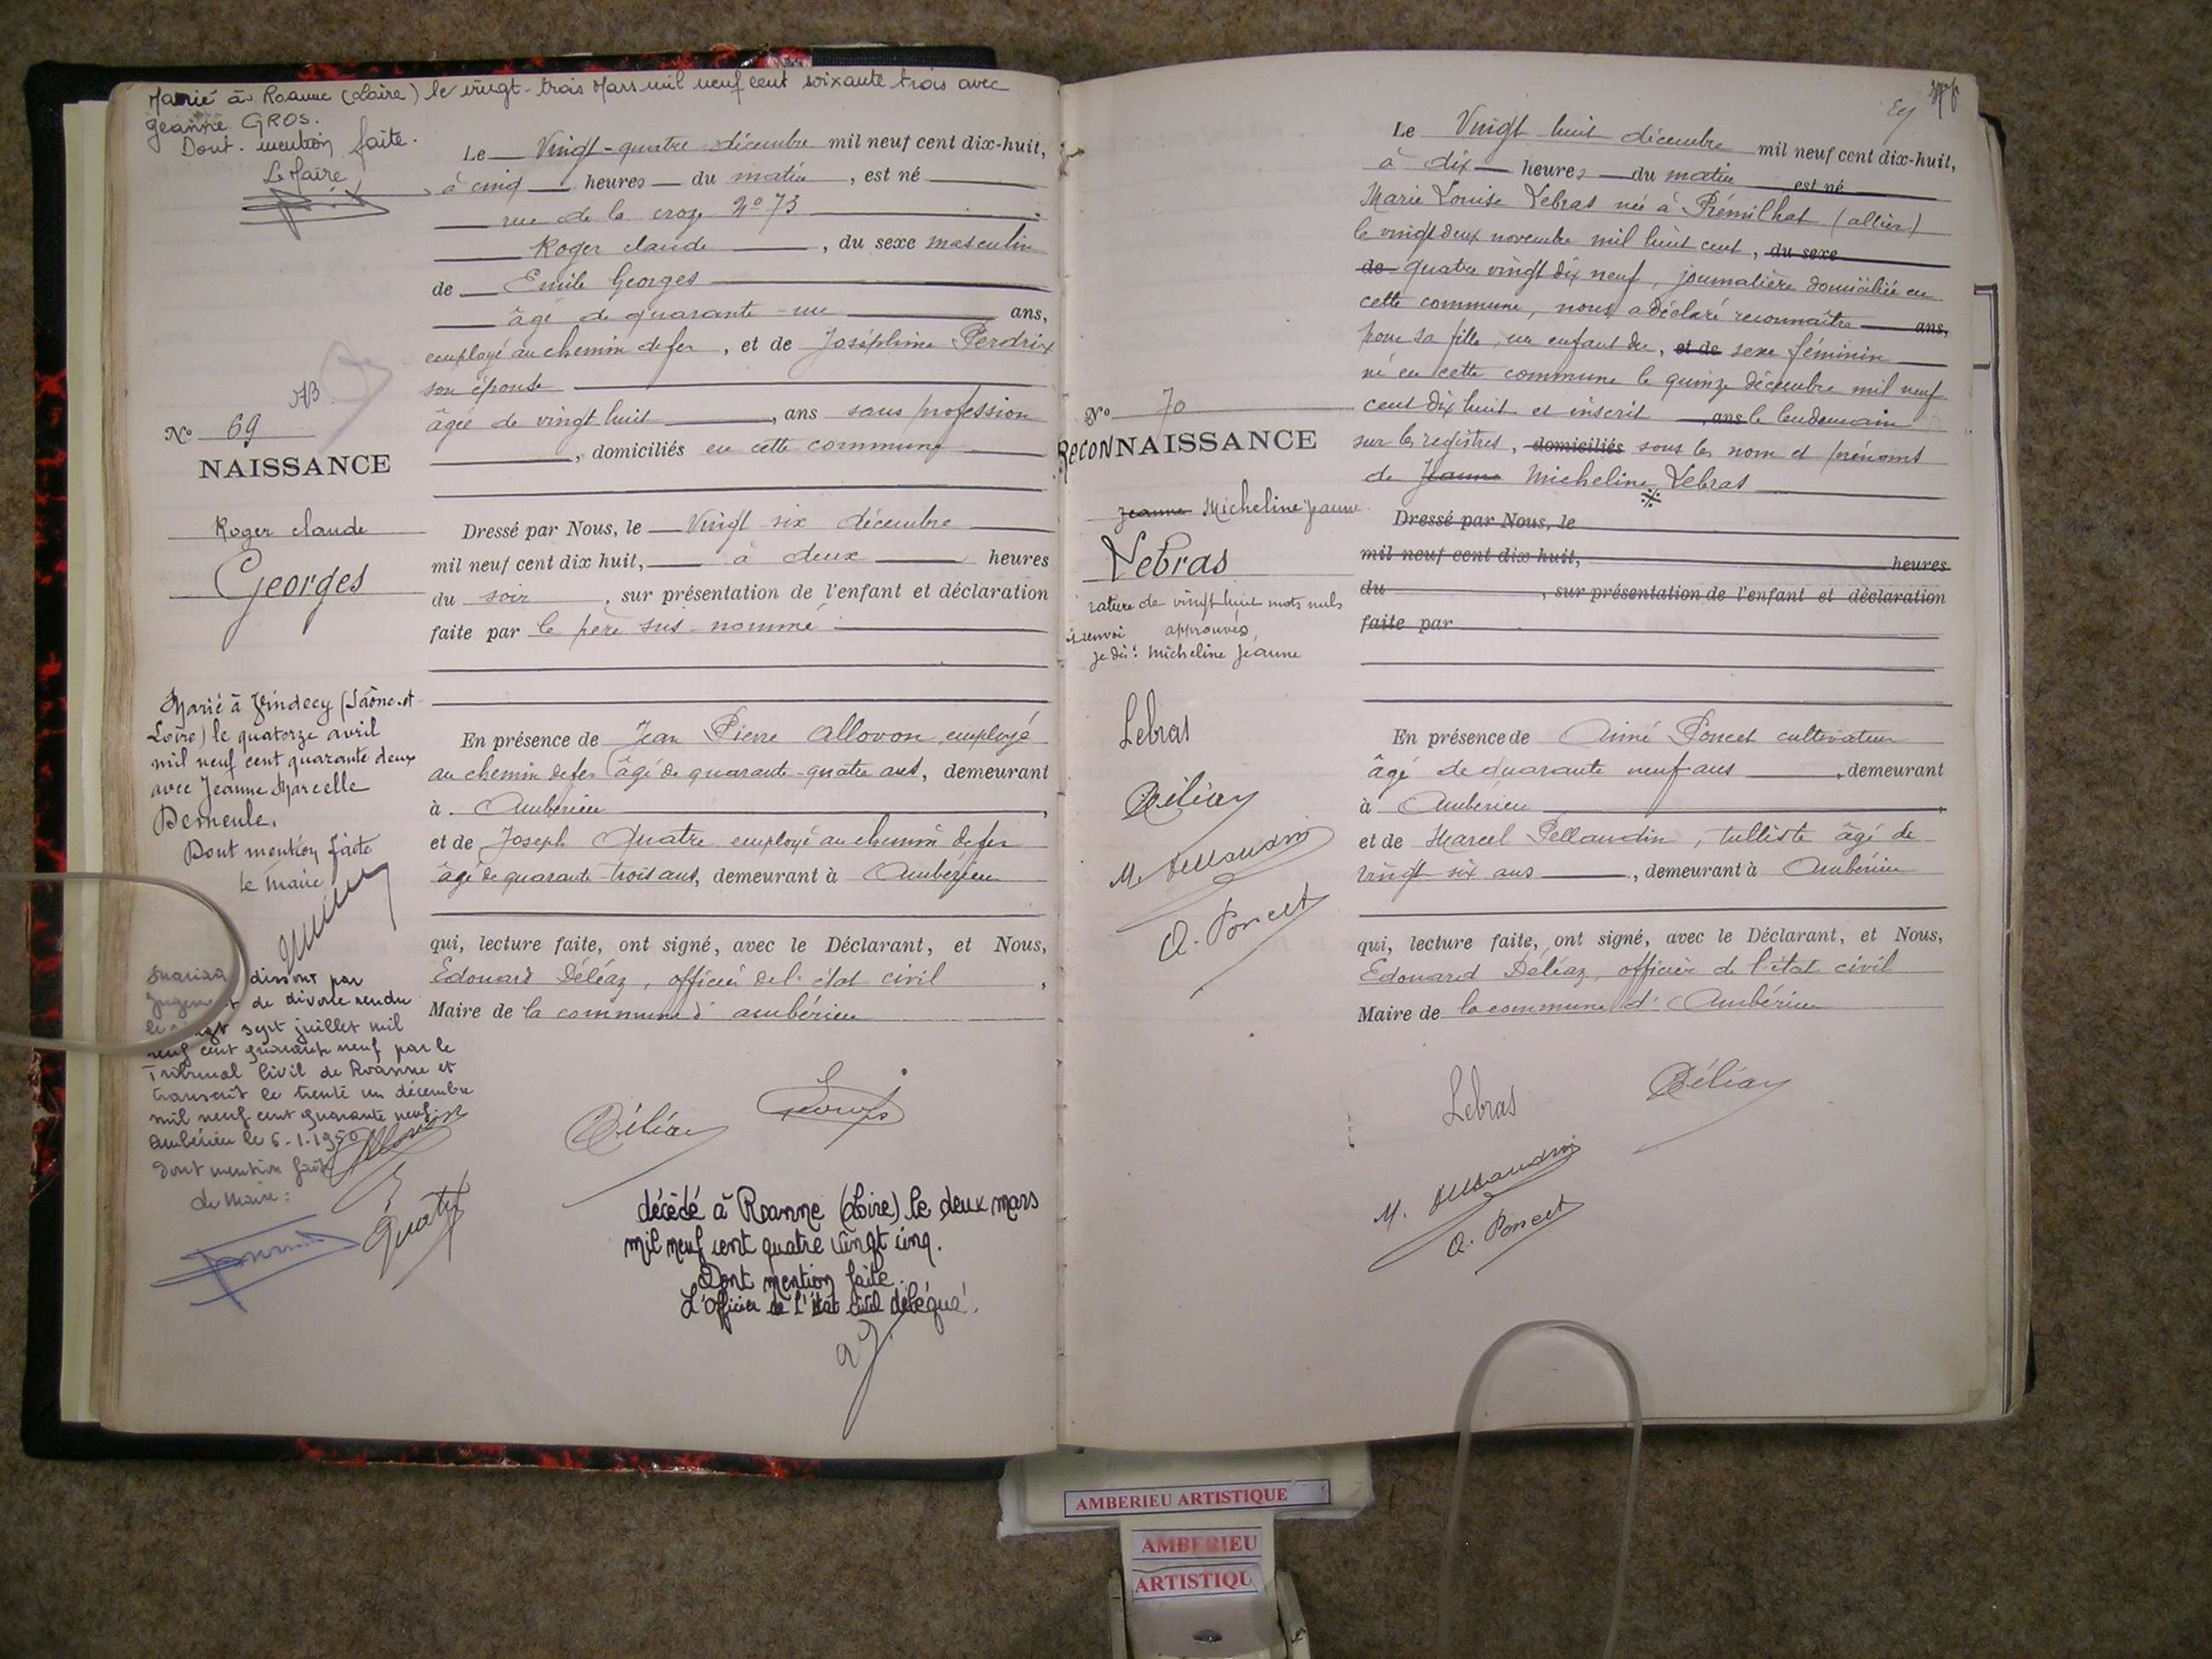 Marié à Roanne (Loire) le vingt-trois Mars mil neuf cent soixante trois avec
Jeanne GROS.
Dont mention faite.
Le Maire
Le Vingt-quatre décembre mil neuf cent dix-huit,
à cinq heures du matin, est né
rue de la croze N° 73
Roger Claude, du sexe masculin
de Emile Georges
âgé de quarante-un ans,
employé au chemin de fer, et de Joséphine Perdrix
son épouse
âgée de vingt huit, ans sans profession
, domiciliés en cette commune
AB
N° 69
NAISSANCE
Roger Claude
Georges
Dressé par Nous, le Vingt six décembre
mil neuf cent dix huit, à deux heures
du soir, sur présentation de l'enfant et déclaration
faite par le père sus-nommé
Marié à Vindecy (Saône-et-
Loire) le quatorze avril
mil neuf cent quarante deux
avec Jeanne Marcelle
Demeule.
Dont mention faite
le Maire
En présence de Jean Pierre Allovon employé
au chemin de fer âgé de quarante-quatre ans, demeurant
à Ambérieu,
et de Joseph Quatre employé au chemin de fer
âgé de quarante-trois ans, demeurant à Ambérieu
qui, lecture faite, ont signé, avec le Déclarant, et Nous,
Edouard Déléaz, officier de l'état civil,
Maire de la commune d'Ambérieu
dissout par
de divorce rendu
sept juillet mil
neuf cent quarante neuf par le
Tribunal Civil de Roanne et
transcrit le trente un décembre
mil neuf cent quarante neuf
Ambérieu le 6-1-1950
Dont mention faite
Le Maire:
Allovon
Quatre
Déléaz
Georges
décédé à Roanne (Loire) le deux mars
mil neuf cent quatre vingt cinq.
Dont mention faite.
L'Officier de l'état civil délégué.
Le Vingt huit décembre mil neuf cent dix-huit,
à dix heures du matin est né
Marie Louise Lebras née à Prémilhat (Allier)
le vingt deux novembre mil huit cent, du sexe
de quatre vingt dix neuf, journalière domiciliée en
cette commune, nous a déclaré reconnaître ans,
pour sa fille, un enfant du, et de sexe féminin
né en cette commune le quinze décembre mil neuf
cent dix huit et inscrit, ans le lendemain
sur les registres, domiciliés sous les nom et prénoms
de Jeanne Micheline Lebras
N° 70
RECONNAISSANCE
Jeanne Micheline Jeanne
Lebras
rature de vingt huit mots nuls
renvoi approuvés,
je dis: Micheline Jeanne
Lebras
Déléaz
M. Pellaudin
A. Poncet
Dressé par Nous, le
mil neuf cent dix huit, heures
du, sur présentation de l'enfant et déclaration
faite par
En présence de Aimé Poncet cultivateur
âgé de quarante neuf ans, demeurant
à Ambérieu,
et de Marcel Pellaudin, tulliste âgé de
vingt six ans, demeurant à Ambérieu
qui, lecture faite, ont signé, avec le Déclarant, et Nous,
Edouard Déléaz, officier de l'état civil
Maire de la commune d'Ambérieu
Lebras
Déléaz
M. Pellaudin
A. Poncet
AMBERIEU ARTISTIQUE
AMBERIEU
ARTISTIQU